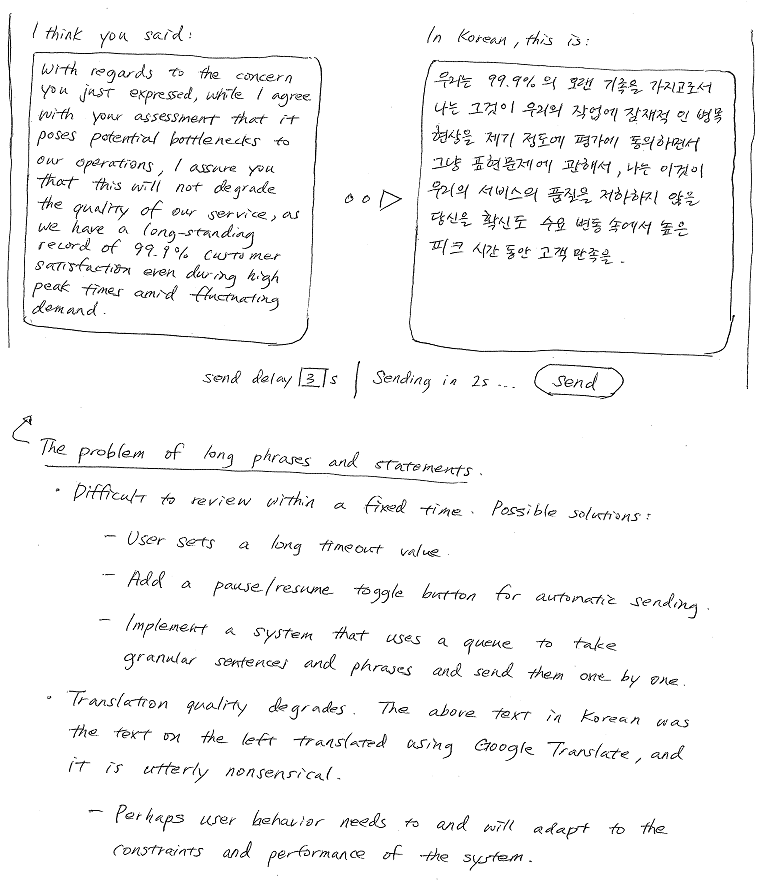 I think you said:
With regards to the concern
you just expressed, while I agree
with your assessment that it
poses potential bottlenecks to
our operations, I assure you
that this will not degrade
the quality of our service, as
we have a long-standing
record of 99.9% customer
satisfaction even during high
peak times amid fluctuating
demand.
In Korean, this is:
우리는 99.9%의 오랜 기록을 가지고로서
나는 그것이 우리의 작업에 잠재적 인 병목
현상을 제기 정도에 평가에 동의하면서
그냥 표현문제에 관해서, 나는 이것이
우리의 서비스의 품질을 저하하지 않을
당신을 확신도 수요 변동 속에서 높은
피크 시간 동안 고객 만족을.
send delay 3 s | Sending in 2s... send
The problem of long phrases and statements.
• Difficult to review within a fixed time. Possible solutions:
– User sets a long timeout value.
– Add a pause/resume toggle button for automatic sending.
– Implement a system that uses a queue to take
granular sentences and phrases and send them one by one.
• Translation quality degrades. The above text in Korean was
the text on the left translated using Google Translate, and
it is utterly nonsensical.
– Perhaps user behavior needs to and will adapt to the
constraints and performance of the system.